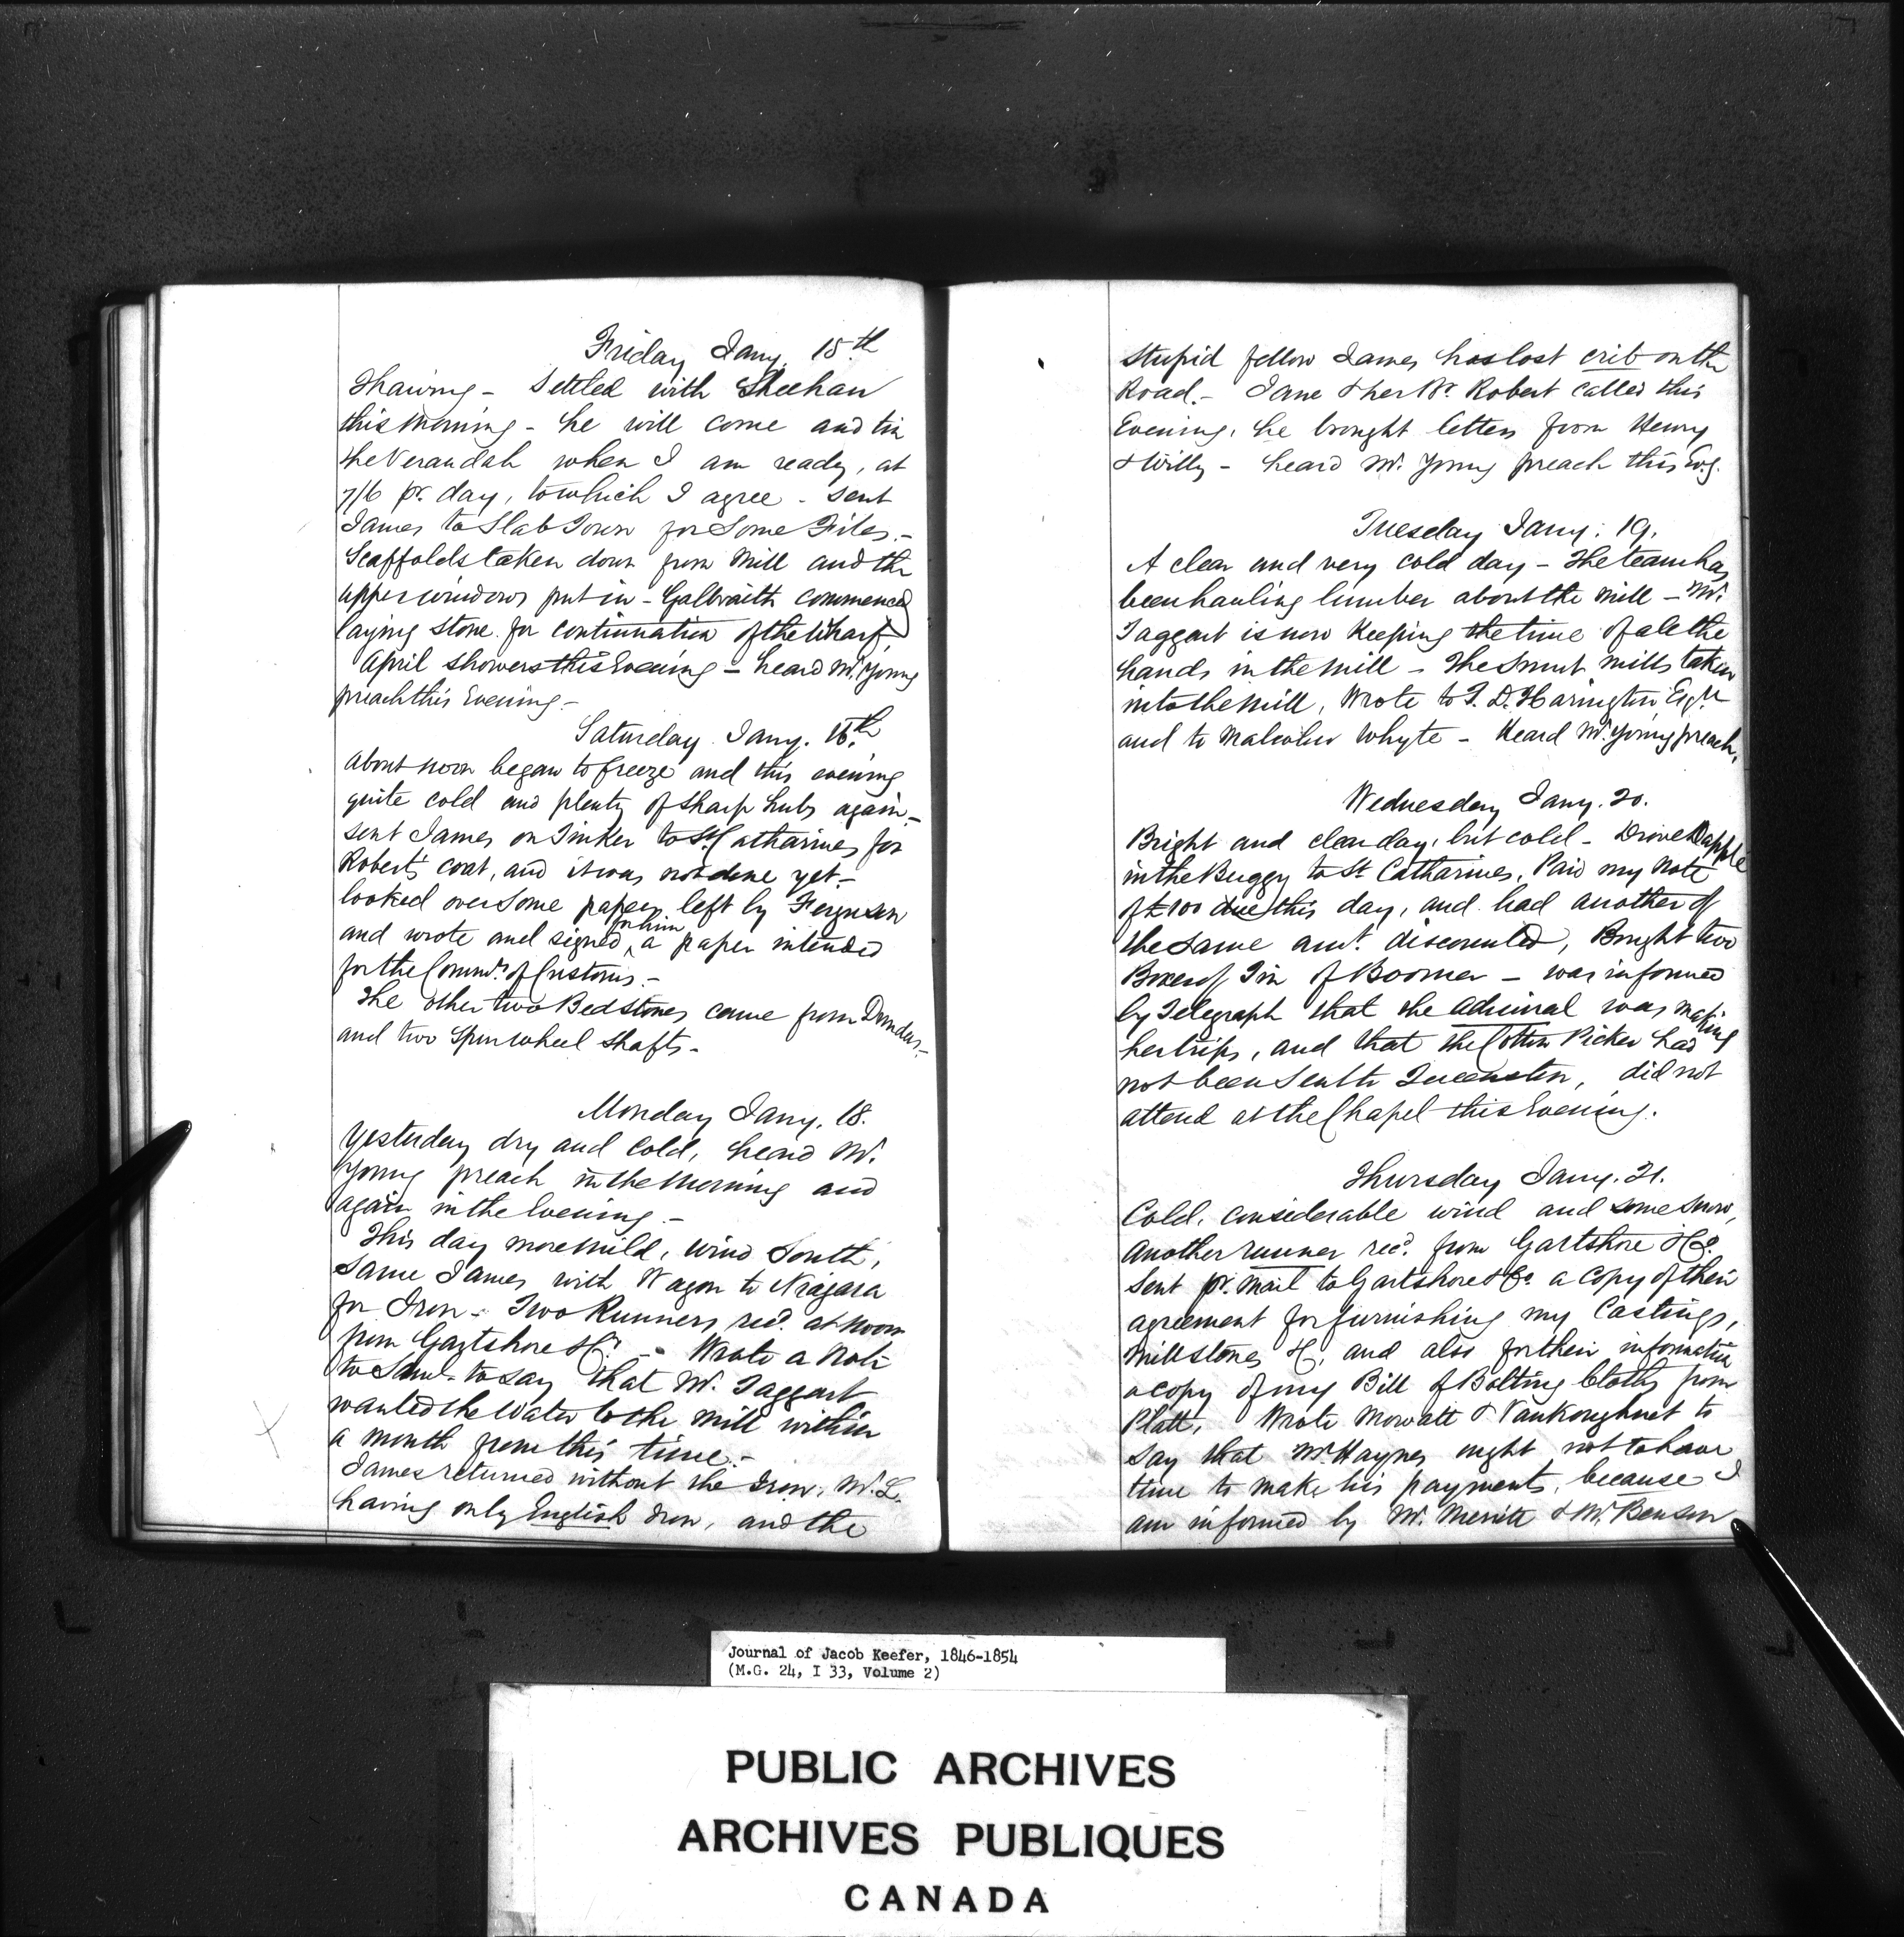 Friday Jany. 15th
Thawing - Settled with Sheehan
this Morning - he will come and tin
the Verandah when I am ready, at
7/6 pr. day, to which I agree - sent
James to Slab Town for Some Files.-
Scaffolds taken down from Mill and the
upper windows put in - Galbraith commenced
laying stone for continuation of the Wharf
April showers this Evening - heard Mr. Young
preach this Evening -
Saturday Jany. 16th
About noon began to freeze and this evening
quite cold and plenty of sharp hubs again -
sent James on Tinker to St. Catharines for
Robert's coat, and it was not done yet -
looked over Some papers left by Ferguson
and wrote and signed for him a paper intended
for the Commr. of Customs -
The other two Bedstones came from Dundas -
and two Spur wheel Shafts -
Monday Jany. 18.
Yesterday dry and cold, heard Mr.
Young preach in the Morning and
again in the Evening -
This day more mild, wind South,
Same James with Wagon to Niagara
for Iron - Two Runners recd. at noon
from Gartshore &c. - Wrote a Note
to say that Mr. Taggart
wanted the Water to the Mill within
a month from this time -
James returned without the Iron, Mr. L.
having only English Iron, and the
Stupid fellow James has lost crib on the
Road. - Jane & her Br. Robert called this
Evening, he brought letters from Henry
& Willy - heard Mr. Young preach this Evg.
Tuesday Jany. 19.
A clear and very cold day - The team has
been hauling lumber about the mill - Mr.
Taggart is now Keeping the time of all the
hands in the mill - The Smut mills taken
into the mill, Wrote to T. D. Harington Esqr
and to Malcolm Whyte - Heard Mr. Young preach.
Wednesday Jany. 20.
Bright and clear day, but cold - Drove Dapple
in the Buggy to St. Catharines, Paid my Note
of £100 due this day, and had another of
the Same amt. discounted, Bought two
Boxes of Tin of Boomer - was informed
by Telegraph that the Admiral was making
her trips, and that the Cotton Picker had
not been Sent to Queenston, did not
attend at the Chapel this Evening.
Thursday Jany. 21.
Cold, considerable wind and some Snow,
Another runner recd. from Gartshore & Co.
Sent pr. Mail to Gartshore & Co. a Copy of their
agreement for furnishing my Castings,
Millstones &c, and also for their information
a copy of my Bill of Bolting Cloths from
Platt, Wrote Mowatt & Vankoughnet to
Say that Mr. Haynes ought not to have
time to make his payments, because I
am informed by Mr. Merritt & Mr. Benson
Journal of Jacob Keefer, 1846-1854
(M.G. 24, I 33, Volume 2)
PUBLIC ARCHIVES
ARCHIVES PUBLIQUES
CANADA